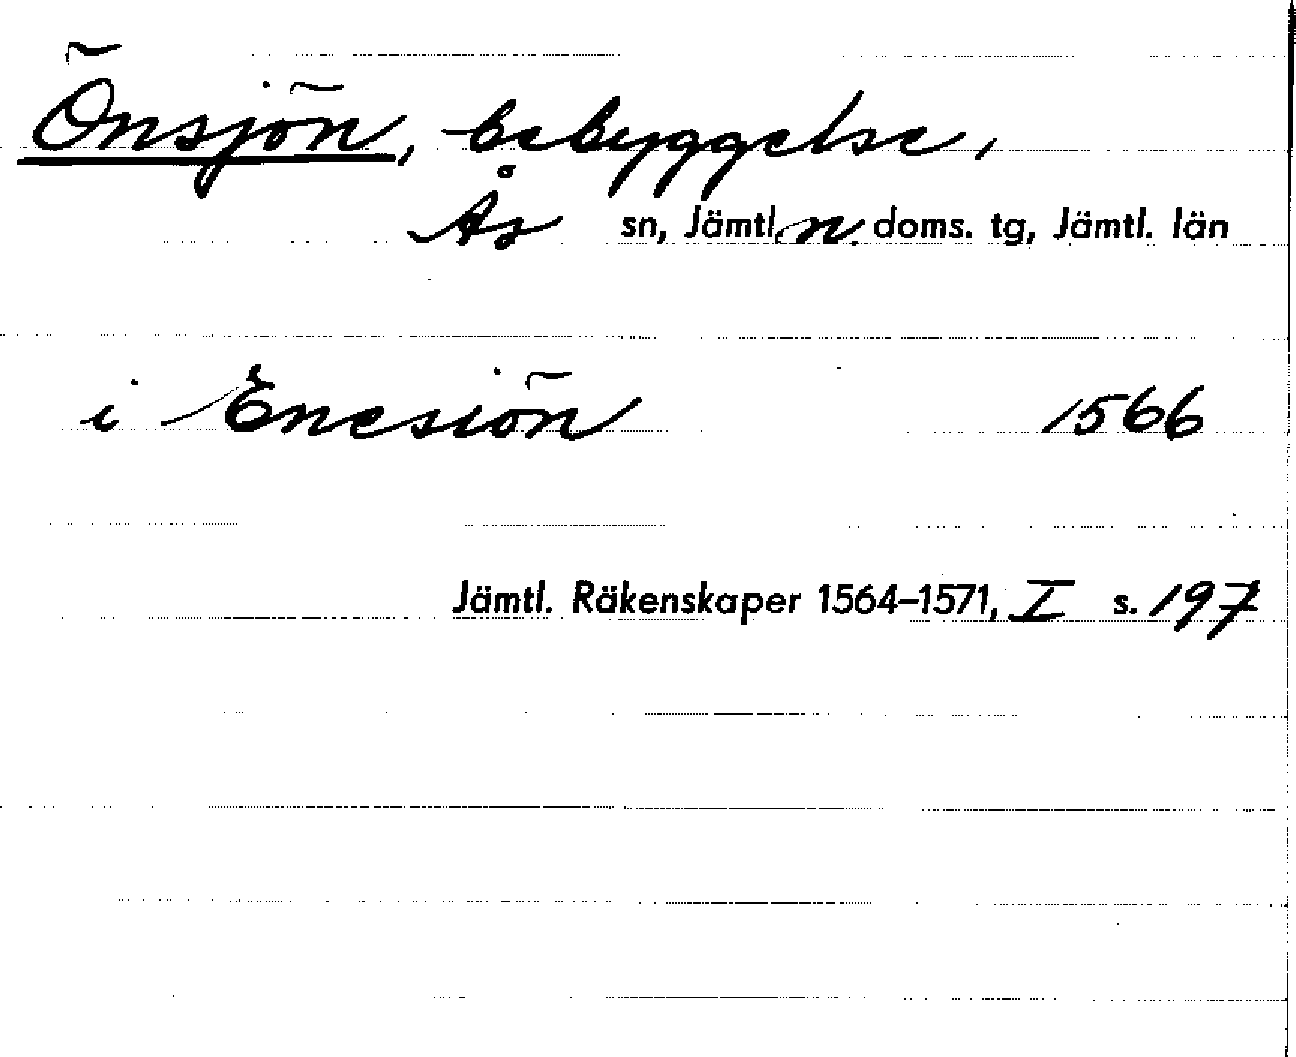 Önsjön, bebyggelse,
Ås sn, Jämtl. n. doms. tg, Jämtl. län
i Enesiön 1566
Jämtl. Räkenskaper 1564–1571, I s. 197